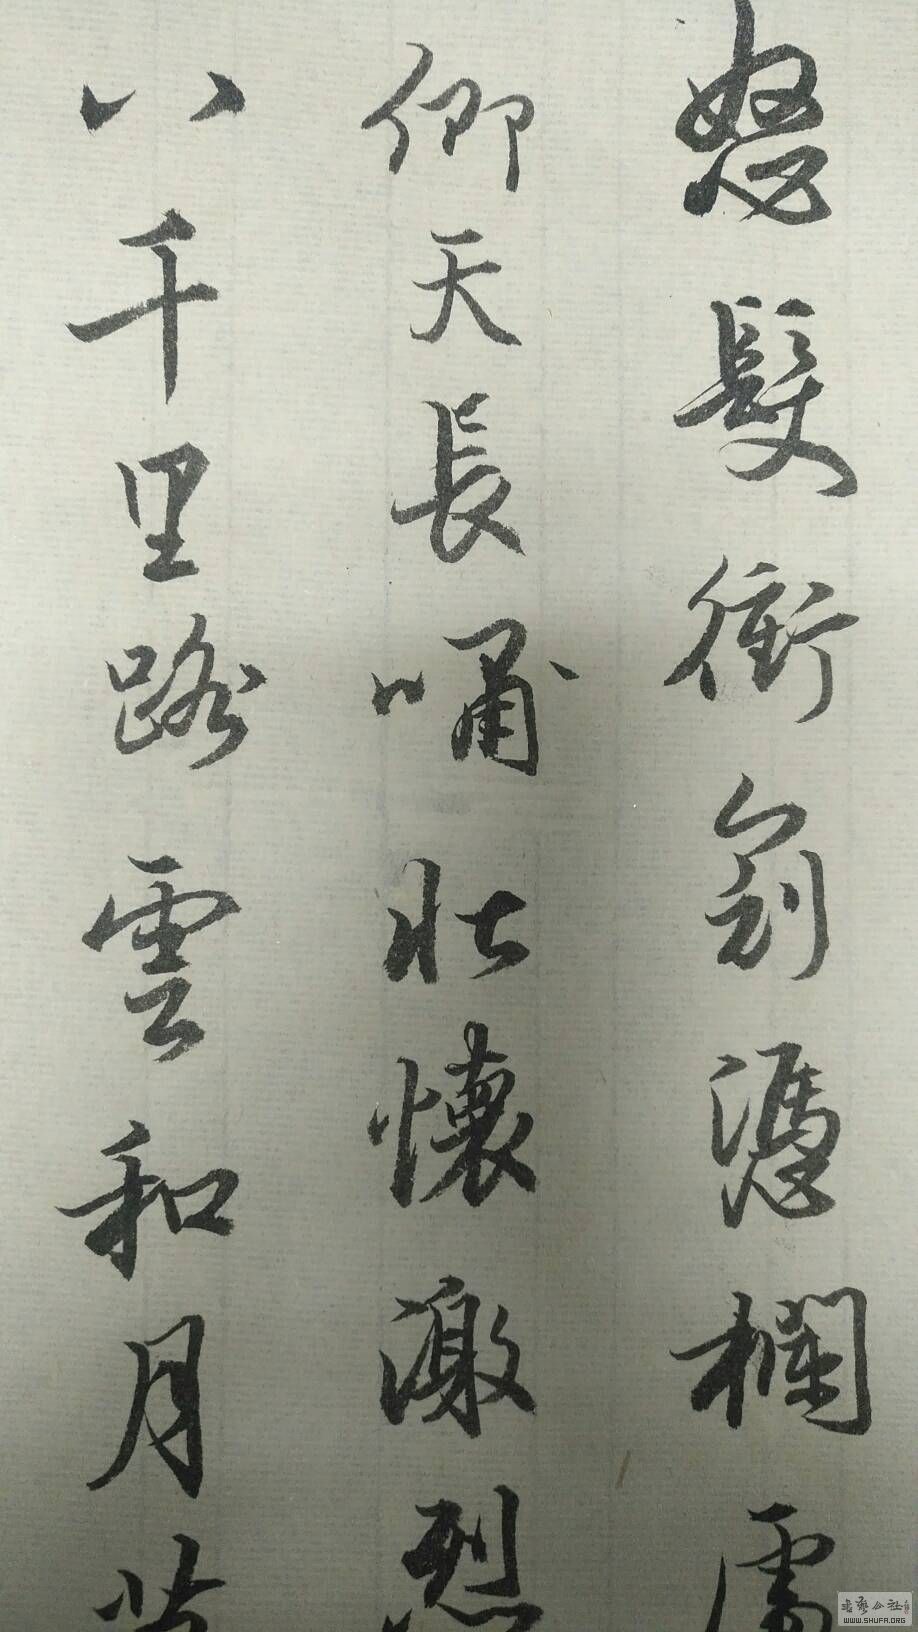 怒髮衝冠憑欄處
仰天長嘯壯懷激烈
八千里路雲和月
WWW.SHUFA.ORG